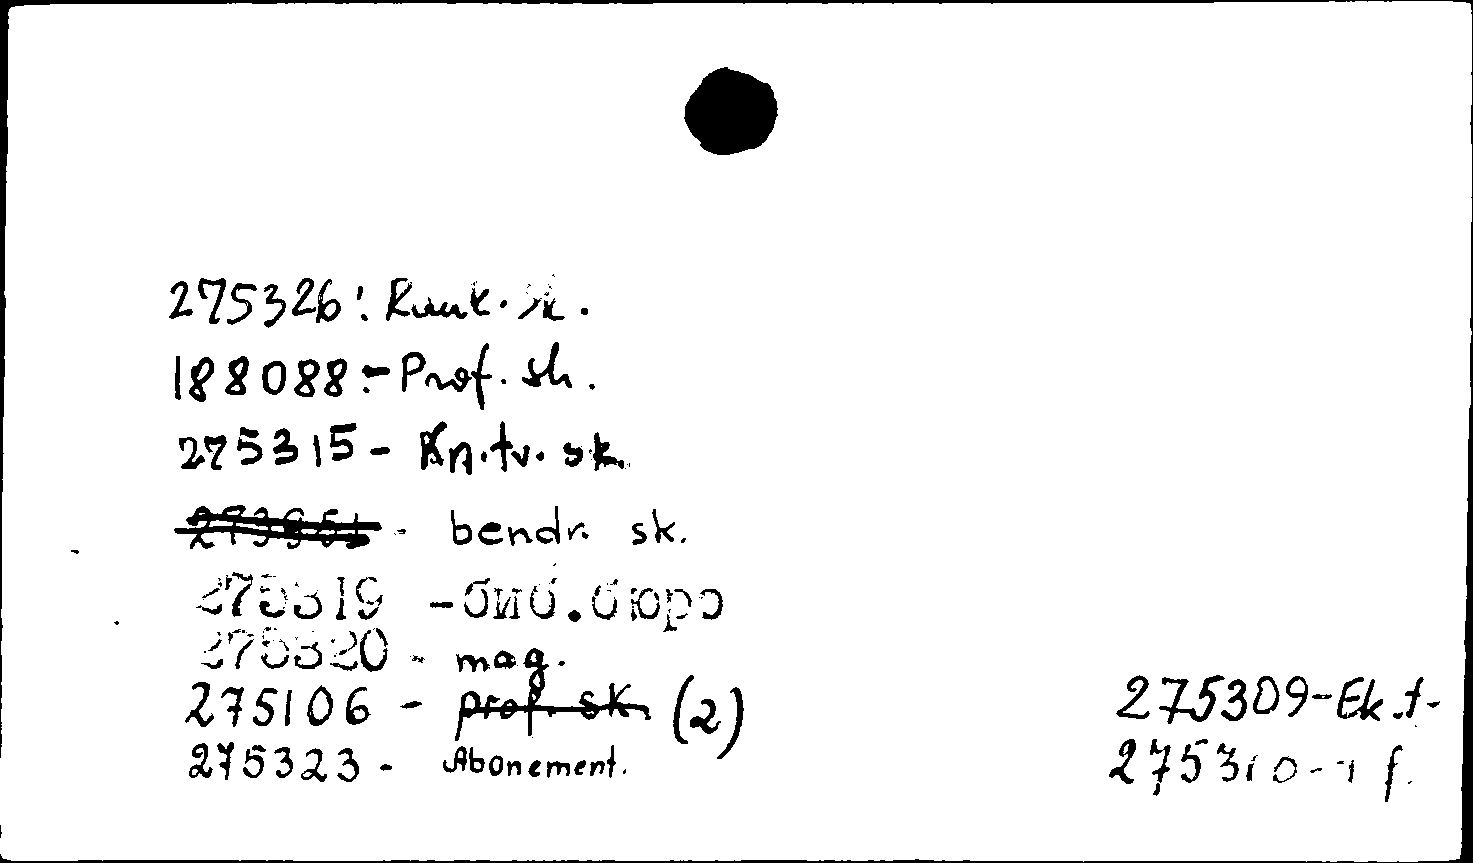 275326! Rank. sk.
188088 :- Prof. sk.
275315 - Kn.tv. sk.
- bendr. sk.
275319 -биб.бюро
275320 - mag.
275106 - prof. sk. (2)
275323 - Abonement.
275309-Ek.t-
275310- f.